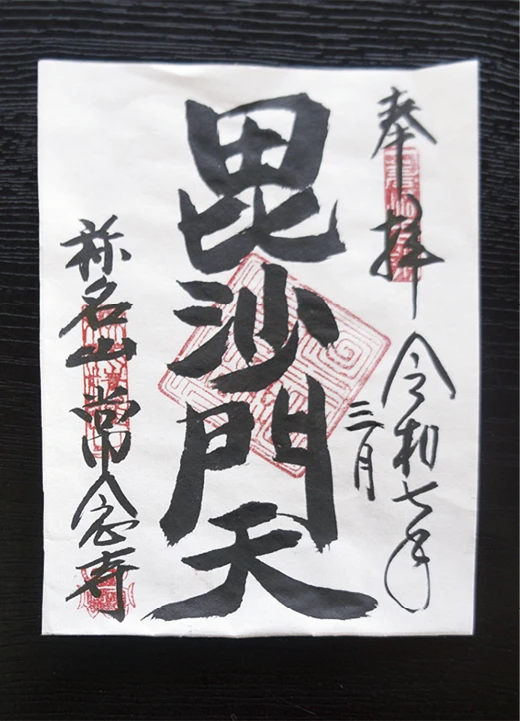 奉拝
令和七年
三月
毘沙門天
称名山常念寺